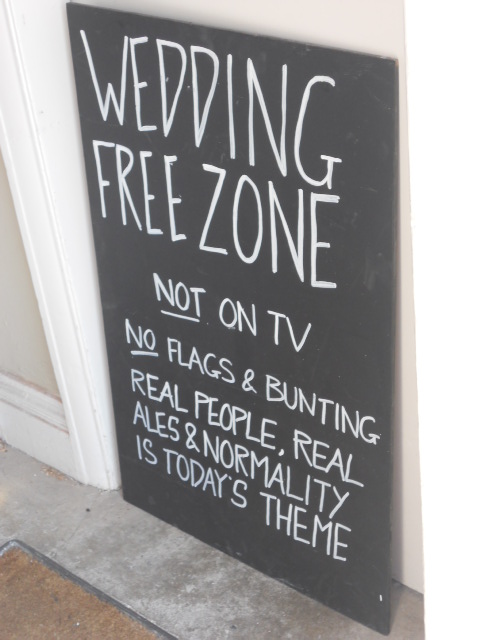 WEDDING
FREE ZONE
NOT ON TV
NO FLAGS & BUNTING
REAL PEOPLE, REAL
ALES & NORMALITY
IS TODAY'S THEME